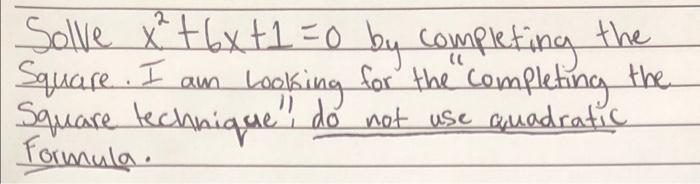 Solve x²+6x+1=0 by completing the
Square. I am looking for the "completing the
Square technique", do not use quadratic
Formula.